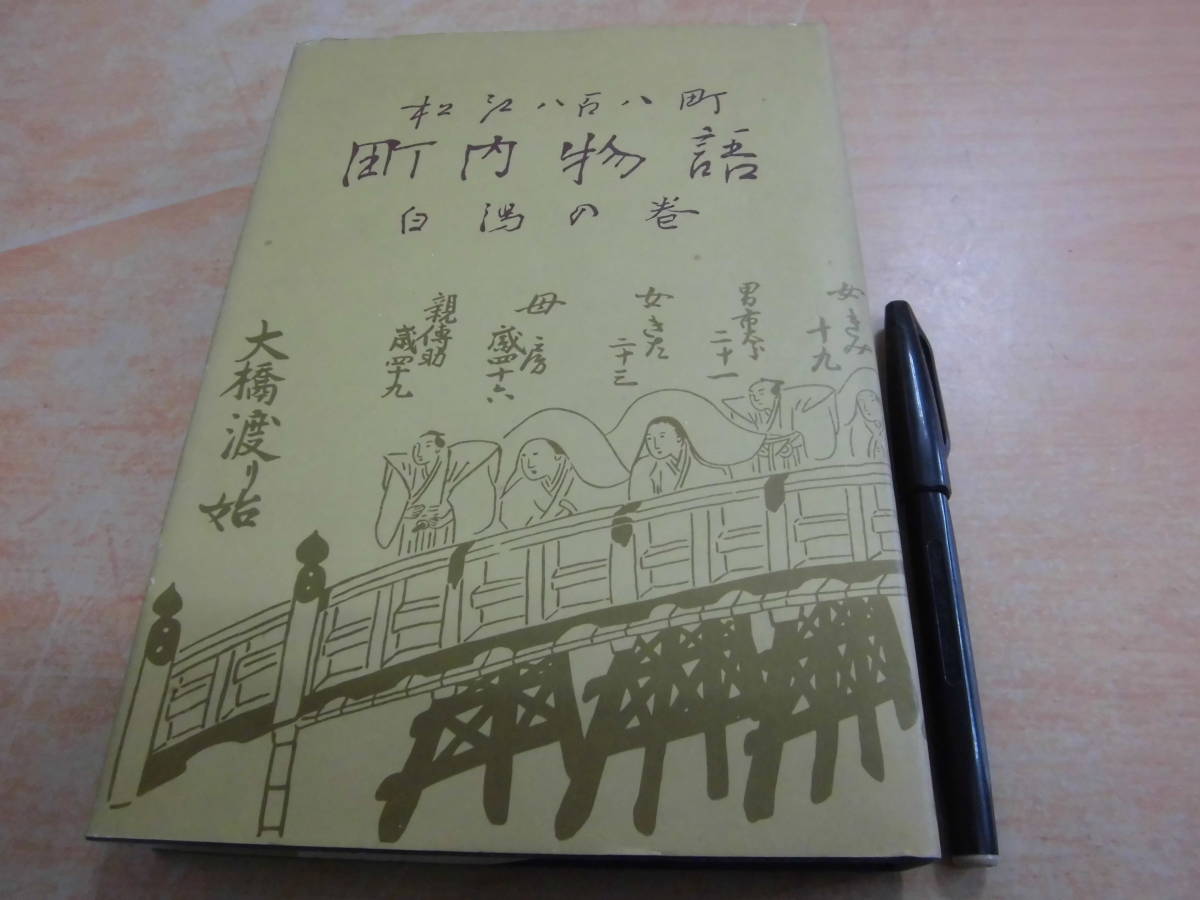 松江八百八町
町内物語
白潟の巻
女きみ
十九
男市太
二十一
女きた
二十三
母房
歳四十六
親傳助
歳四十九
大橋渡り始